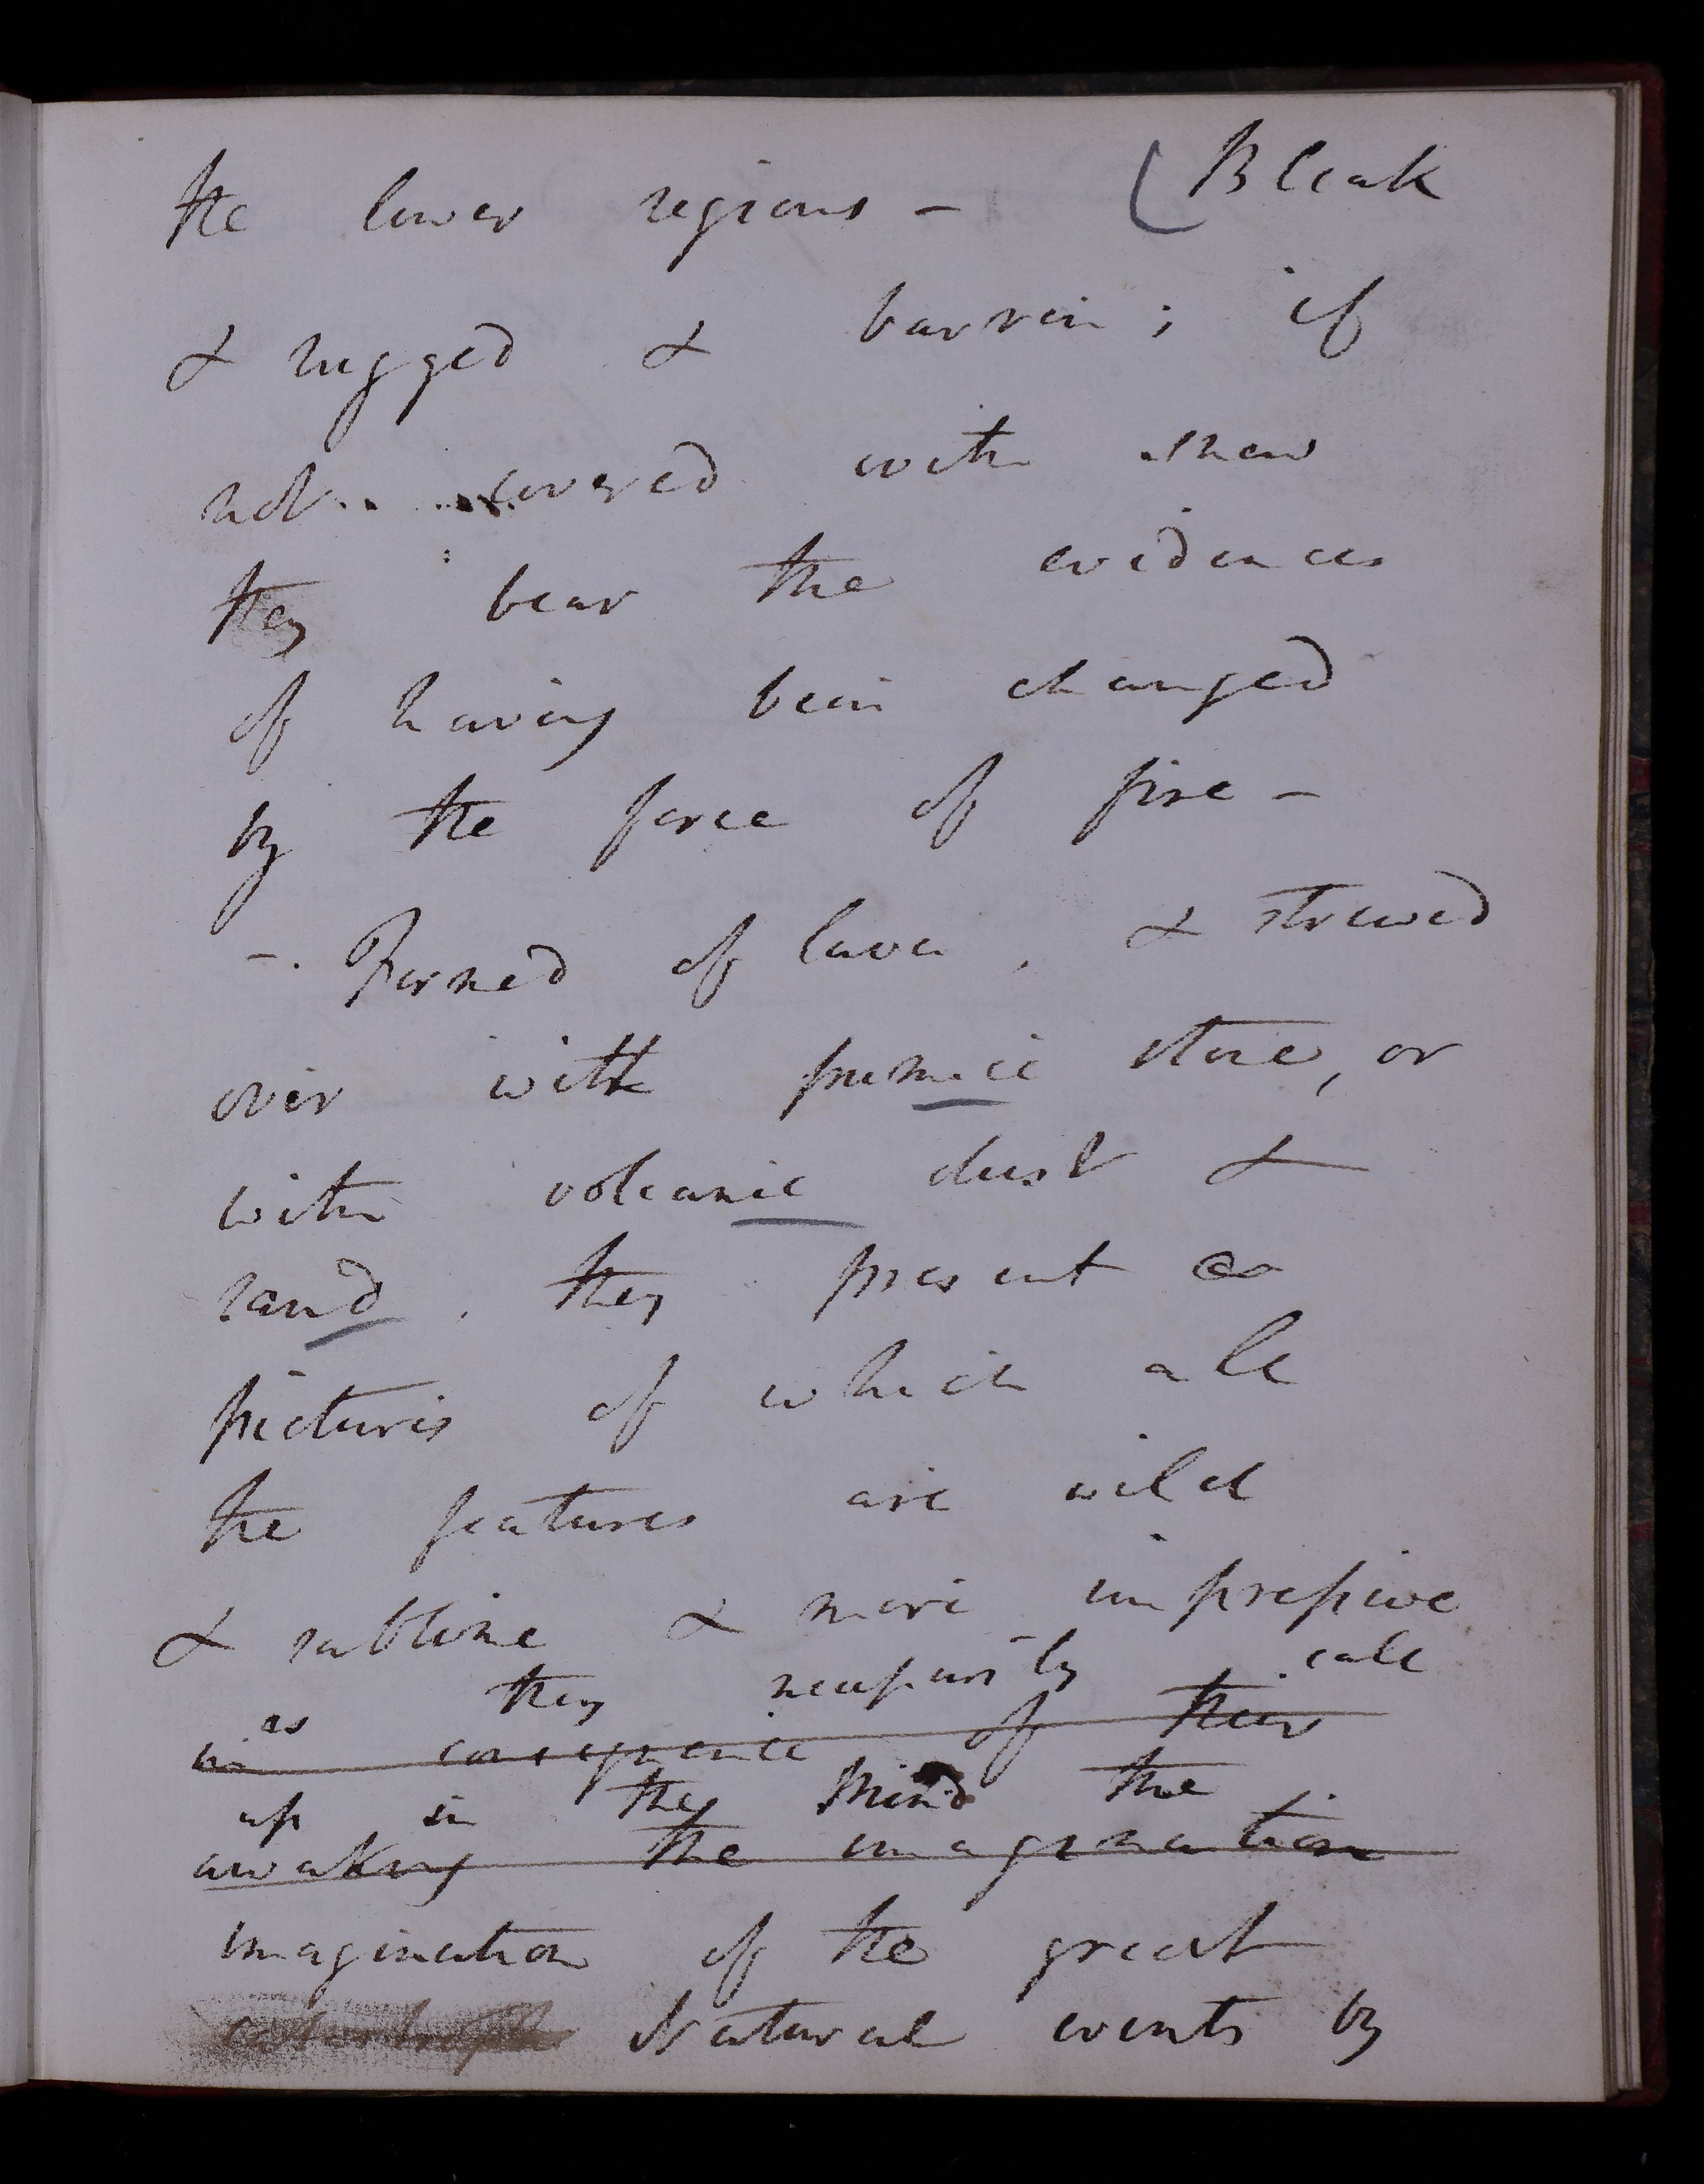 the lower regions – (Bleak
& rugged & barren; if
not covered with snow
they bear the evidences
of having been changed
by the force of fire –
–. Formed of lava, & strewed
over with pumice stone, or
with volcanic dust &
sand. they present
pictures of which all
the features are wild
& sublime & more impressive
as they necessarily call
in consequence of their
up in the Mind the
awaking the imagination
imagination of the great
catastrophe Natural events by